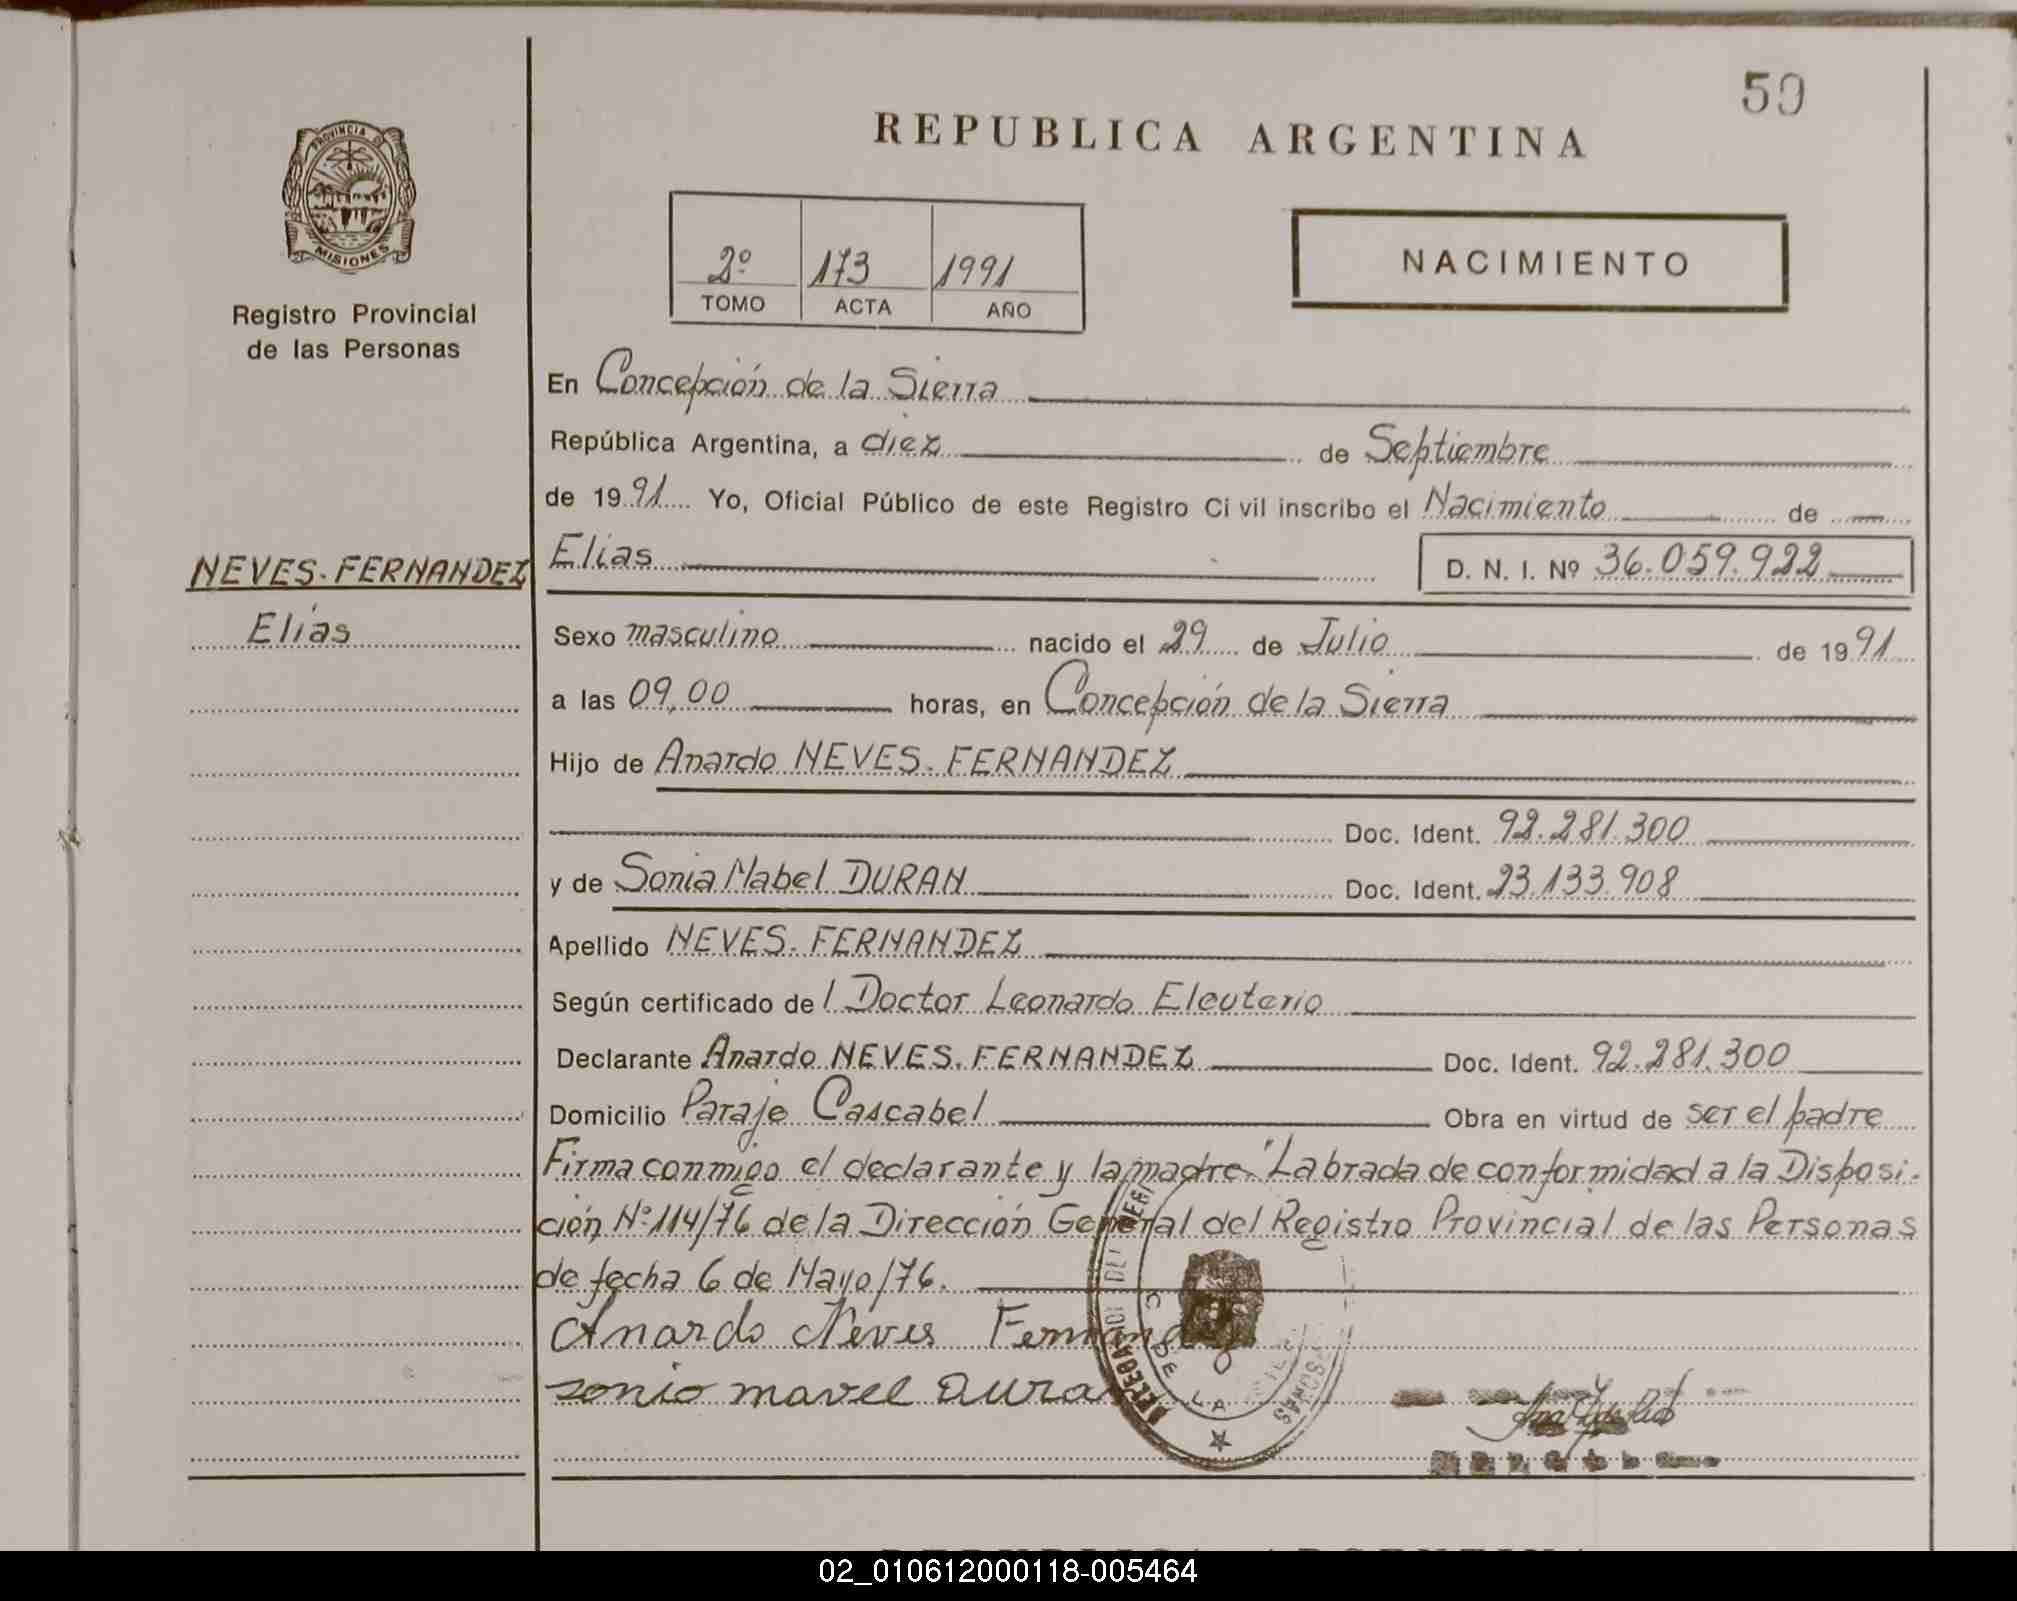 50
REPUBLICA ARGENTINA
PROVINCIA DE
MISIONES
Registro Provincial
de las Personas
2º 173 1991
TOMO ACTA AÑO
NACIMIENTO
En Concepción de la Sierra
República Argentina, a diez de Septiembre
de 1991 Yo, Oficial Público de este Registro Civil inscribo el Nacimiento de
NEVES. FERNANDEZ
Elias
Elias D. N. I. Nº 36.059.922
Sexo masculino nacido el 29 de Julio de 1991
a las 09,00 horas, en Concepción de la Sierra
Hijo de Anardo NEVES. FERNANDEZ
Doc. Ident. 92.281.300
y de Sonia Mabel DURAN Doc. Ident. 23.133.908
Apellido NEVES. FERNANDEZ
Según certificado del Doctor Leonardo Eleuterio
Declarante Anardo NEVES. FERNANDEZ Doc. Ident. 92.281.300
Domicilio Paraje Cascabel Obra en virtud de ser el padre
Firma conmigo el declarante y la madre. "Labrada de conformidad a la Disposi-
ción Nº 114/76 de la Dirección General del Registro Provincial de las Personas
de fecha 6 de Mayo/76.
Anardo Neves Fernandez
sonia mavel Duran
DE LA
02_010612000118-005464